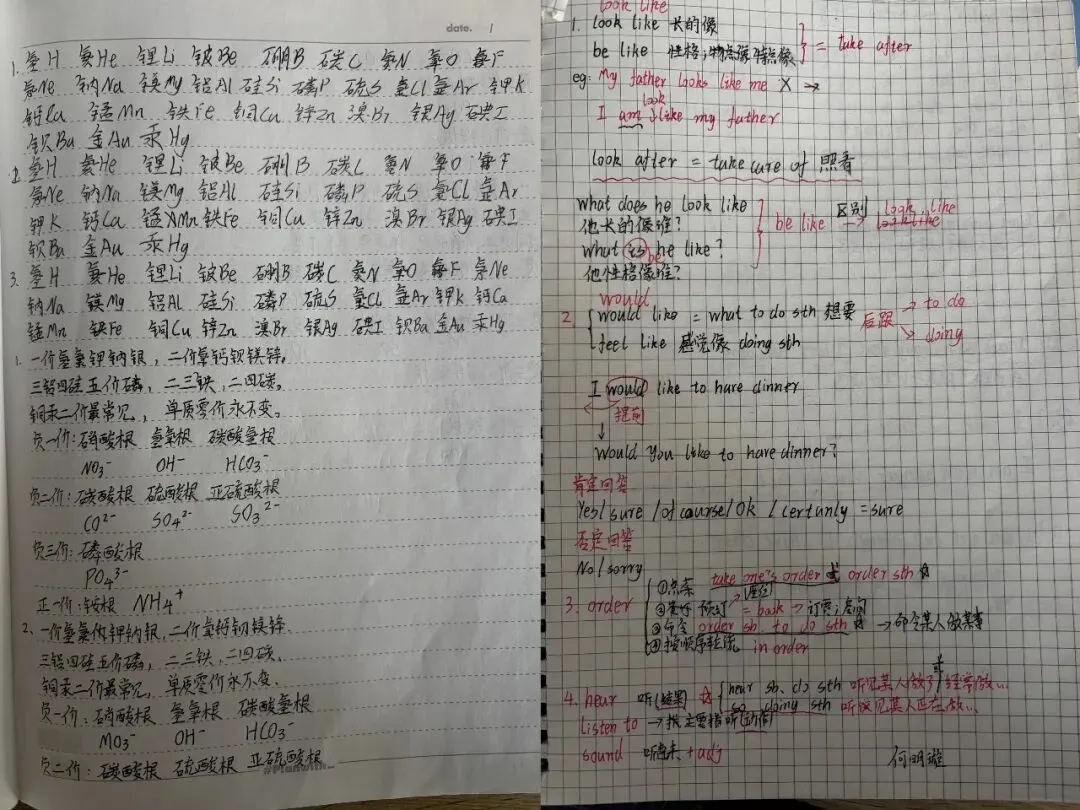 date. /
1. 氢H 氦He 锂Li 铍Be 硼B 碳C 氮N 氧O 氟F
氖Ne 钠Na 镁Mg 铝Al 硅Si 磷P 硫S 氯Cl 氩Ar 钾K
钙Ca 锰Mn 铁Fe 铜Cu 锌Zn 溴Br 银Ag 碘I
钡Ba 金Au 汞Hg
2. 氢H 氦He 锂Li 铍Be 硼B 碳C 氮N 氧O 氟F
氖Ne 钠Na 镁Mg 铝Al 硅Si 磷P 硫S 氯Cl 氩Ar
钾K 钙Ca 锰Mn 铁Fe 铜Cu 锌Zn 溴Br 银Ag 碘I
钡Ba 金Au 汞Hg
3. 氢H 氦He 锂Li 铍Be 硼B 碳C 氮N 氧O 氟F 氖Ne
钠Na 镁Mg 铝Al 硅Si 磷P 硫S 氯Cl 氩Ar 钾K 钙Ca
锰Mn 铁Fe 铜Cu 锌Zn 溴Br 银Ag 碘I 钡Ba 金Au 汞Hg
1. 一价氢氯钾钠银，二价氧钙钡镁锌。
三铝四硅五价磷，二三铁，二四碳。
铜汞二价最常见，单质零价永不变。
负一价：硝酸根 氢氧根 碳酸氢根
NO3⁻ OH⁻ HCO3⁻
负二价：碳酸根 硫酸根 亚硫酸根
CO²⁻ SO4²⁻ SO3²⁻
负三价：磷酸根
PO4³⁻
正一价：铵根 NH4⁺
2、一价氢氯钾钠银，二价氧钙钡镁锌
三铝四硅五价磷，二三铁，二四碳.
铜汞二价最常见，单质零价永不变.
负一价：硝酸根 氢氧根 碳酸氢根
MO3⁻ OH⁻ HCO3⁻
负二价：碳酸根 硫酸根 亚硫酸根
look like
1. look like 长的像
be like 性格；物点像特点像 } = take after
eg: My father looks like me X →
look
I am like my father
look after = take care of 照看
what does he look like
他长的像谁?
what is he like?
be
他性格像谁?
be like 区别 → look like
would
2. would like = what to do sth 想要
feel like 感觉像 doing sth
后跟 → to do
doing
I would like to have dinner
提前
↓
Would You like to have dinner?
肯定回答
Yes/ sure / of course/ Ok / certunly = sure
否定回答
No / sorry
3. order
①点菜 take one's order 或 order sth ☆
预订 = book → 订票；房间
③命令 order sb to do sth → 命令某人做某事
④按顺序轮流 in order
4. hear 听(结果) ☆ { hear sb. do sth 听见某人做了/经常做...
doing sth 听见某人正在做...
listen to → 主要指听(动作)
sound 听起来 + adj